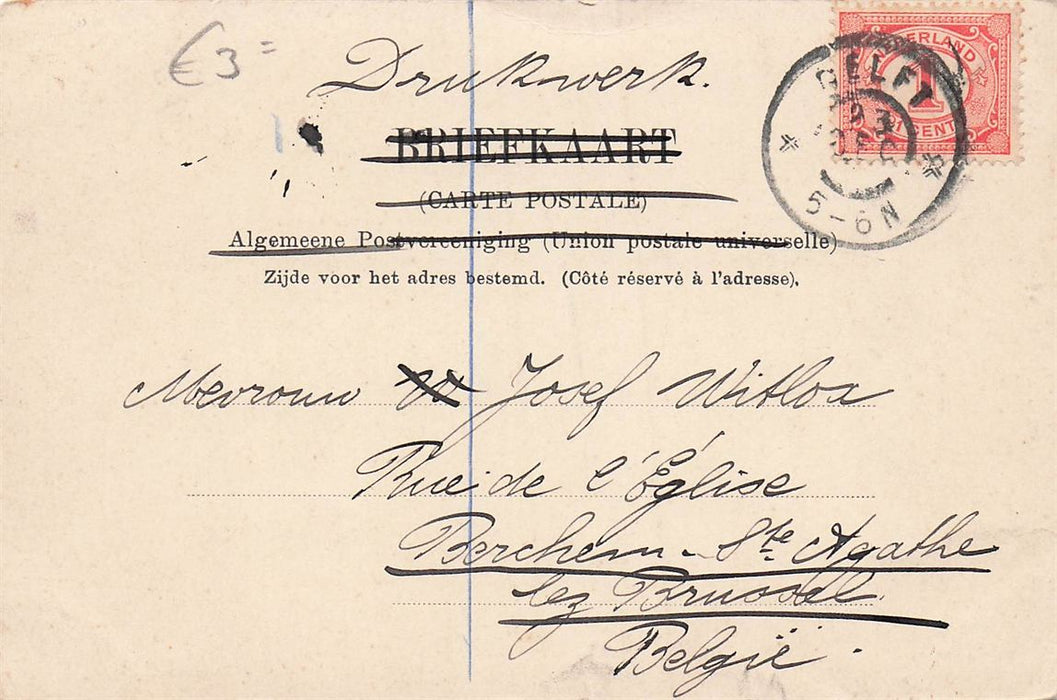 €3=
Drukwerk.
BRIEFKAART
(CARTE POSTALE)
Algemeene Postvereeniging (Union postale universelle)
Zijde voor het adres bestemd. (Côté réservé à l'adresse).
NEDERLAND
1
CENT
DELFT
5-6N
Mevrouw Josef Witlox
Rue de l'Église
Berchem-Ste Agathe
lez Brussel.
België.